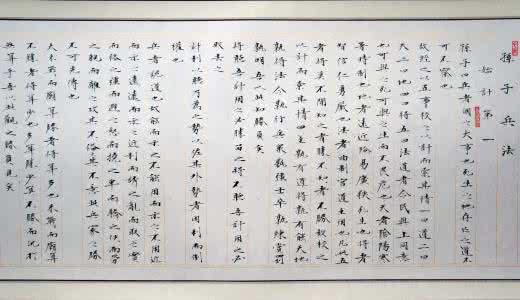 孫子兵法
始計第一
孫子曰兵者國之大事也死生之地存亡之道不
可不察也
故經之以五事校之以計而索其情一曰道二曰
天三曰地四曰將五曰法道者令民與上同意
也可與之死可與之生而民不危也天者陰陽寒
暑時制也地者遠近險易廣狹死生也將者
智信仁勇嚴也法者曲制官道主用也凡此五
者將莫不聞知之者勝不知者不勝故校之
以計而索其情曰主孰有道將孰有能天地
孰得法令孰行兵眾孰強士卒孰練賞罰
孰明吾以此知勝負矣
將聽吾計用之必勝留之將不聽吾計用之必
敗去之
計利以聽乃為之勢以佐其外勢者因利而制
權也
兵者詭道也故能而示之不能用而示之不用近
而示之遠遠而示之近利而誘之亂而取之實
而備之強而避之怒而撓之卑而驕之佚而勞
之親而離之攻其不備出其不意此兵家之勝
不可先傳也
夫未戰而廟算勝者得算多也未戰而廟算
不勝者得算少也多算勝少算不勝而況於
無算乎吾以此觀之勝負見矣